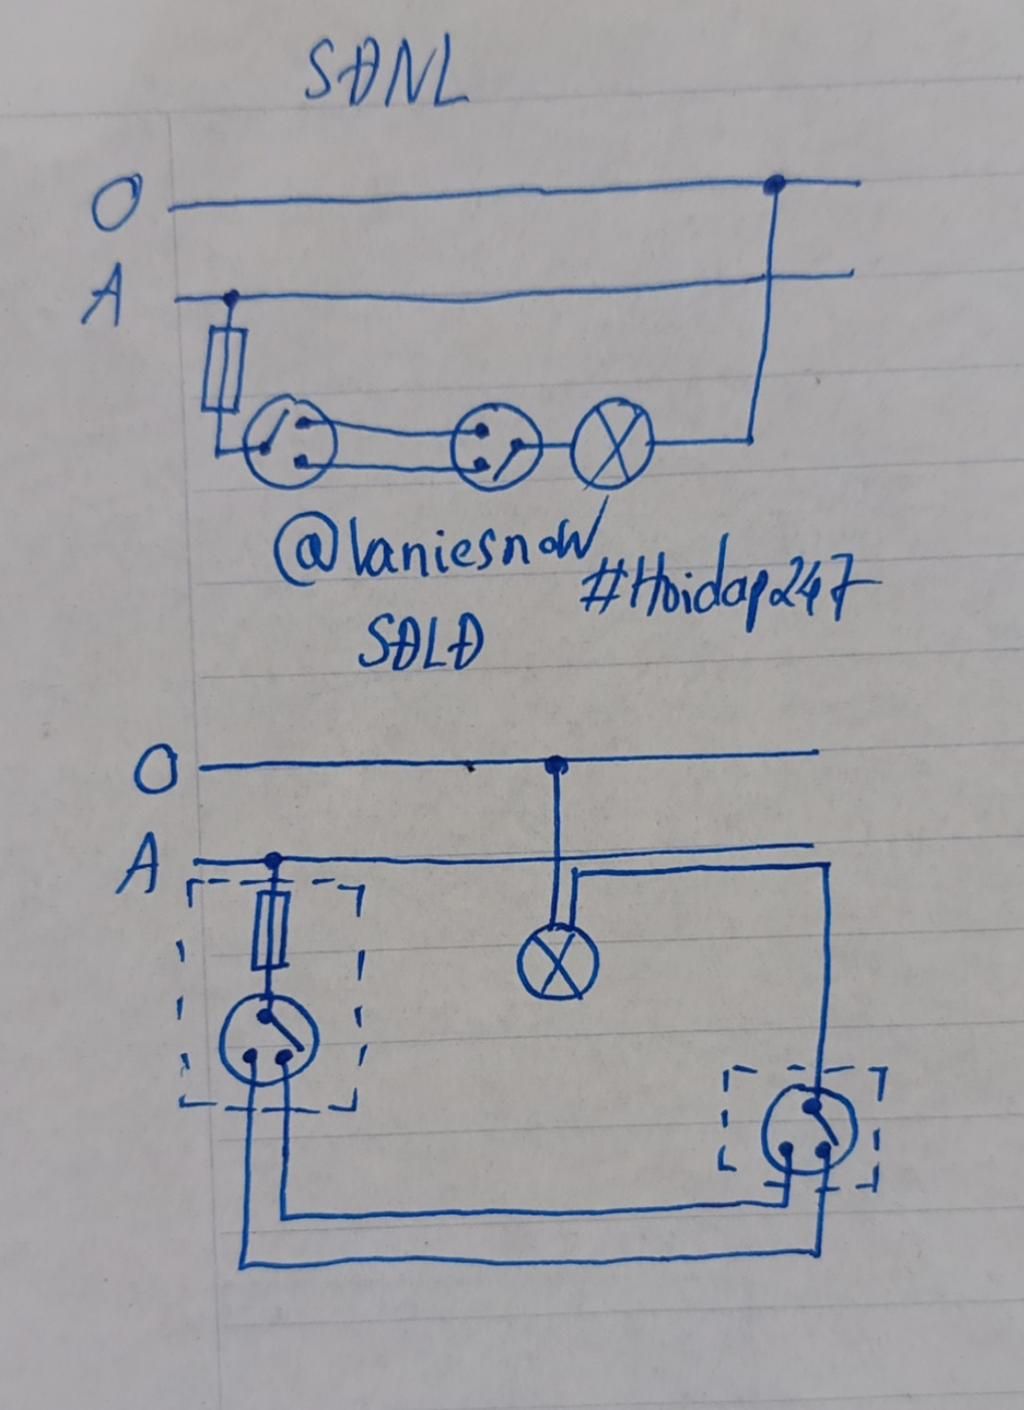 SĐNL
O
A
@laniesnow
#Hoidap247
SĐLĐ
O
A